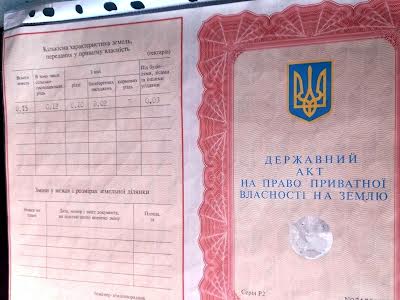 Кількісна характеристика земель,
переданих у приватну власність
(гектарів)
Всього
земель
В тому числі
сільсько-
господарських
угідь
З них
рілля
багаторічних
насаджень
кормових
угідь
Під
лісами
та іншими
угіддями
0,15 0,12 0,10 0,02 - 0,03
Зміни у межах і розмірах земельної ділянки
Дата, номер і зміст документа,
Площа,
га
ДЕРЖАВНИЙ
АКТ
НА ПРАВО ПРИВАТНОЇ
ВЛАСНОСТІ НА ЗЕМЛЮ
Серія Р2